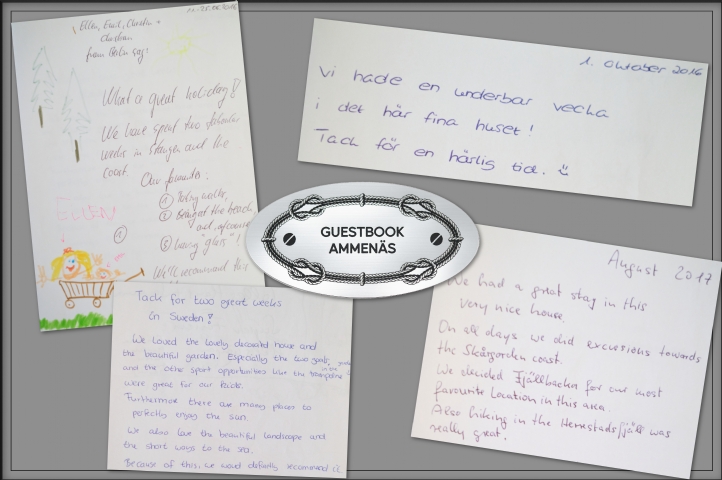 Ellen, Emil, Christin +
Christian
from Berlin say:
What a great holiday!
We have spent two
weeks in and the
coast.
Our favourits:
①
② the beach
and, of course
③ having "glass"!
We'll recommend this
①
1. Oktober 2016
Vi hade en underbar vecka
i det här fina huset!
Tack för en härlig tid.
GUESTBOOK
AMMENÄS
Tack for two great weeks
in Sweden!
We loved the lovely decorated house and
the beautiful garden. Especially the two goals,
and the other sport opportunities like the trampoline
were great for our kids.
Furthermore there are many places to
perfectly enjoy the sun.
We also love the beautiful landscape and
the short ways to the sea.
Because of this, we woud definitly recommend it.
August 2017
We had a great stay in this
very nice house.
On all days we did excursions towards
the Skärgården coast.
We elected Fjällbacka for our most
favourite location in this area.
Also hiking in the Herrestadsfjäll was
really great.